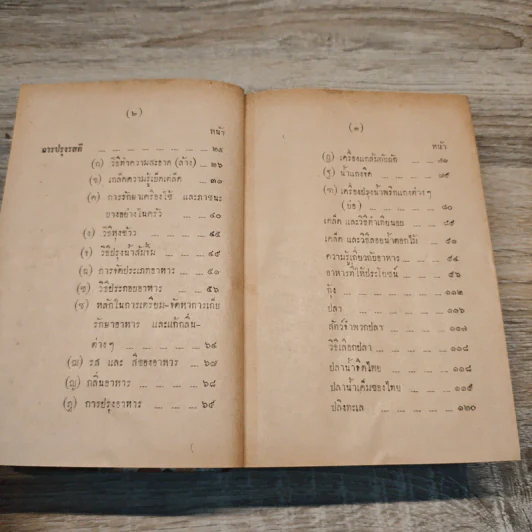 (๒)
หน้า
การปรุงรสดี ... ... ... ๒๕
(ก) วิธีทำความสะอาด (ล้าง) ... ๒๖
(ข) เกล็ดความรู้เบ็ดเตล็ด ... ๓๐
(ค) การรักษาเครื่องใช้ และภาชนะ
บางอย่างในครัว ... ... ๔๐
(ง) วิธีหุงข้าว ... ... ... ๔๕
(จ) วิธีปรุงน้ำส้มจิ้ม ... ... ๔๔
(ฉ) การจัดประเภทอาหาร ... ... ๕๑
(ช) วิธีประกอบอาหาร ... ... ๕๖
(ซ) หลักในการเตรียม-จัดหาการเก็บ
รักษาอาหาร และแก้กลิ่น-
ต่างๆ ... ... ... ๖๔
(ฌ) รส และ สีของอาหาร ... ๖๗
(ญ) กลิ่นอาหาร ... ... ... ๖๘
(ฎ) การปรุงอาหาร ... ... ๖๙
(๓)
หน้า
(ฏ) เครื่องแกล้มกับผัด ...
(ฐ) น้ำแกงจืด ... ...
(ฑ) เครื่องปรุงน้ำพริกแกงต่างๆ
(ย่อ) ... ... ... ๘๐
เคล็ด และวิธีทำเทียนอบ ... ... ๘๙
เคล็ด และวิธีลอยน้ำดอกไม้ ... ๙๑
ความรู้เกี่ยวกับอาหาร ... ... ๙๔
อาหารที่ให้ประโยชน์ ... ... ๙๖
กุ้ง ... ... ... ... ๑๑๒
ปลา ... ... ... ...
สัตว์จำพวกปลา ... ... ... ๑๑๗
วิธีเลือกปลา ... ... ... ๑๑๘
ปลาน้ำจืดไทย ... ... ... ๑๑๘
ปลาน้ำเค็มของไทย ... ... ๑๑๙
ปลิงทะเล ... ... ... ๑๒๐